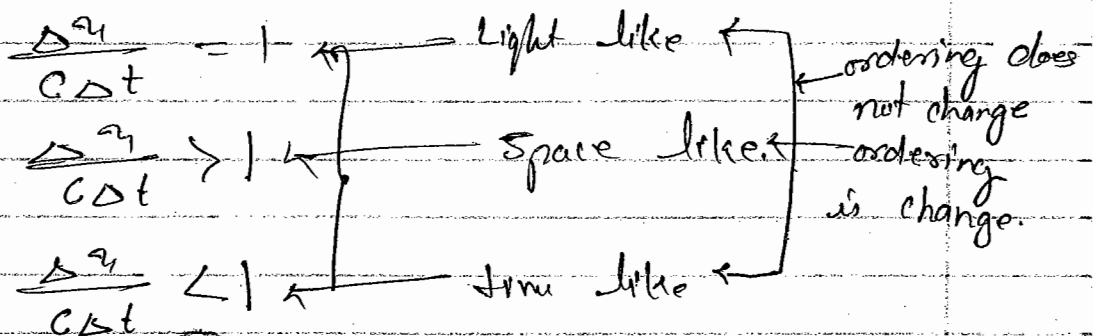 Δx/cΔt = 1 ← Light like ← ordering does not change
Δx/cΔt > 1 ← Space like. ← ordering is change.
Δx/cΔt < 1 ← time like ←